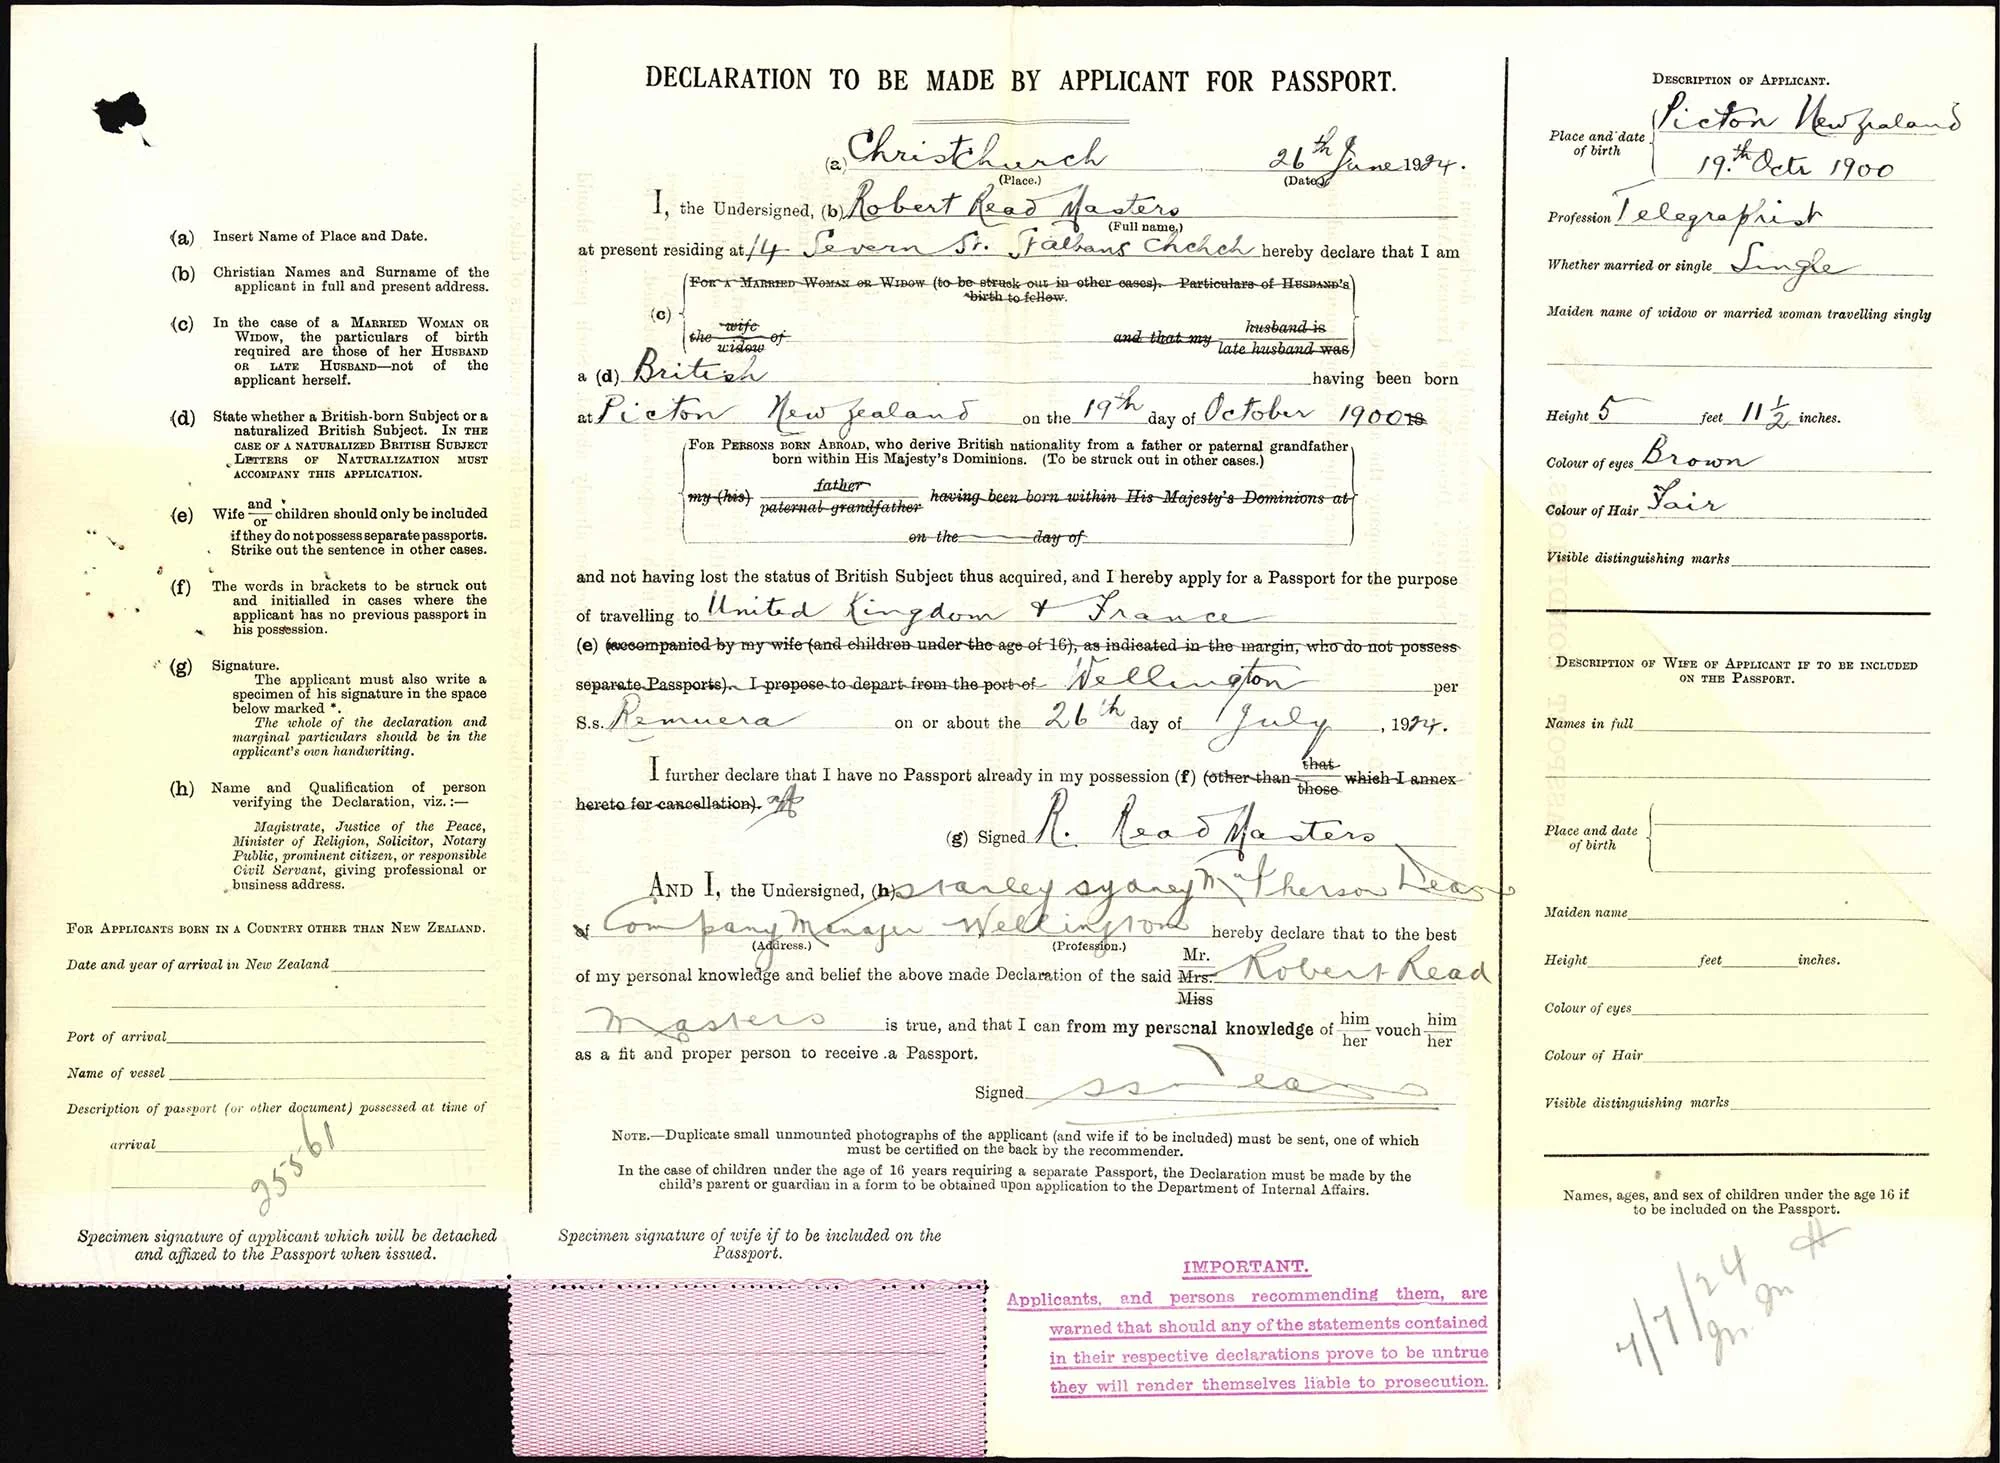 (a) Insert Name of Place and Date.
(b) Christian Names and Surname of the
applicant in full and present address.
(c) In the case of a MARRIED WOMAN OR
WIDOW, the particulars of birth
required are those of her HUSBAND
OR LATE HUSBAND—not of the
applicant herself.
(d) State whether a British-born Subject or a
naturalized British Subject. IN THE
CASE OF A NATURALIZED BRITISH SUBJECT
LETTERS OF NATURALIZATION MUST
ACCOMPANY THIS APPLICATION.
(e) Wife and/or children should only be included
if they do not possess separate passports.
Strike out the sentence in other cases.
(f) The words in brackets to be struck out
and initialled in cases where the
applicant has no previous passport in
his possession.
(g) Signature.
The applicant must also write a
specimen of his signature in the space
below marked *.
The whole of the declaration and
marginal particulars should be in the
applicant's own handwriting.
(h) Name and Qualification of person
verifying the Declaration, viz.:—
Magistrate, Justice of the Peace,
Minister of Religion, Solicitor, Notary
Public, prominent citizen, or responsible
Civil Servant, giving professional or
business address.
FOR APPLICANTS BORN IN A COUNTRY OTHER THAN NEW ZEALAND.
Date and year of arrival in New Zealand
Port of arrival
Name of vessel
Description of passport (or other document) possessed at time of
arrival
25561
Specimen signature of applicant which will be detached
and affixed to the Passport when issued.
DECLARATION TO BE MADE BY APPLICANT FOR PASSPORT.
(a) Christchurch 26th June 1924.
(Place.) (Date.)
I, the Undersigned, (b) Robert Read Masters
(Full name.)
at present residing at 14 Severn St. St Albans Chchch hereby declare that I am
FOR A MARRIED WOMAN OR WIDOW (to be struck out in other cases). Particulars of HUSBAND'S
birth to follow.
(c) the wife/widow of and that my husband is/late husband was
a (d) British having been born
at Picton New Zealand on the 19th day of October 1900 18
FOR PERSONS BORN ABROAD, who derive British nationality from a father or paternal grandfather
born within His Majesty's Dominions. (To be struck out in other cases.)
my (his) father/paternal grandfather having been born within His Majesty's Dominions at
on the day of
and not having lost the status of British Subject thus acquired, and I hereby apply for a Passport for the purpose
of travelling to United Kingdom & France
(e) (accompanied by my wife (and children under the age of 16), as indicated in the margin, who do not possess
separate Passports). I propose to depart from the port of Wellington per
S.s. Remuera on or about the 26th day of July, 1924.
I further declare that I have no Passport already in my possession (f) (other than that/those which I annex
hereto for cancellation).
(g) Signed R. Read Masters
AND I, the Undersigned, (h) Stanley Sydney McPherson Dean
of Company Manager Wellington hereby declare that to the best
(Address.) (Profession.)
of my personal knowledge and belief the above made Declaration of the said Mr./Mrs./Miss Robert Read
Masters is true, and that I can from my personal knowledge of him/her vouch him/her
as a fit and proper person to receive a Passport.
Signed SS Dean
NOTE.—Duplicate small unmounted photographs of the applicant (and wife if to be included) must be sent, one of which
must be certified on the back by the recommender.
In the case of children under the age of 16 years requiring a separate Passport, the Declaration must be made by the
child's parent or guardian in a form to be obtained upon application to the Department of Internal Affairs.
Specimen signature of wife if to be included on the
Passport.
IMPORTANT.
Applicants, and persons recommending them, are
warned that should any of the statements contained
in their respective declarations prove to be untrue
they will render themselves liable to prosecution.
DESCRIPTION OF APPLICANT.
Place and date of birth Picton New Zealand
19th Octr 1900
Profession Telegraphist
Whether married or single Single
Maiden name of widow or married woman travelling singly
Height 5 feet 11 1/2 inches.
Colour of eyes Brown
Colour of Hair Fair
Visible distinguishing marks
DESCRIPTION OF WIFE OF APPLICANT IF TO BE INCLUDED
ON THE PASSPORT.
Names in full
Place and date
of birth
Maiden name
Height feet inches.
Colour of eyes
Colour of Hair
Visible distinguishing marks
Names, ages, and sex of children under the age 16 if
to be included on the Passport.
4/7/24